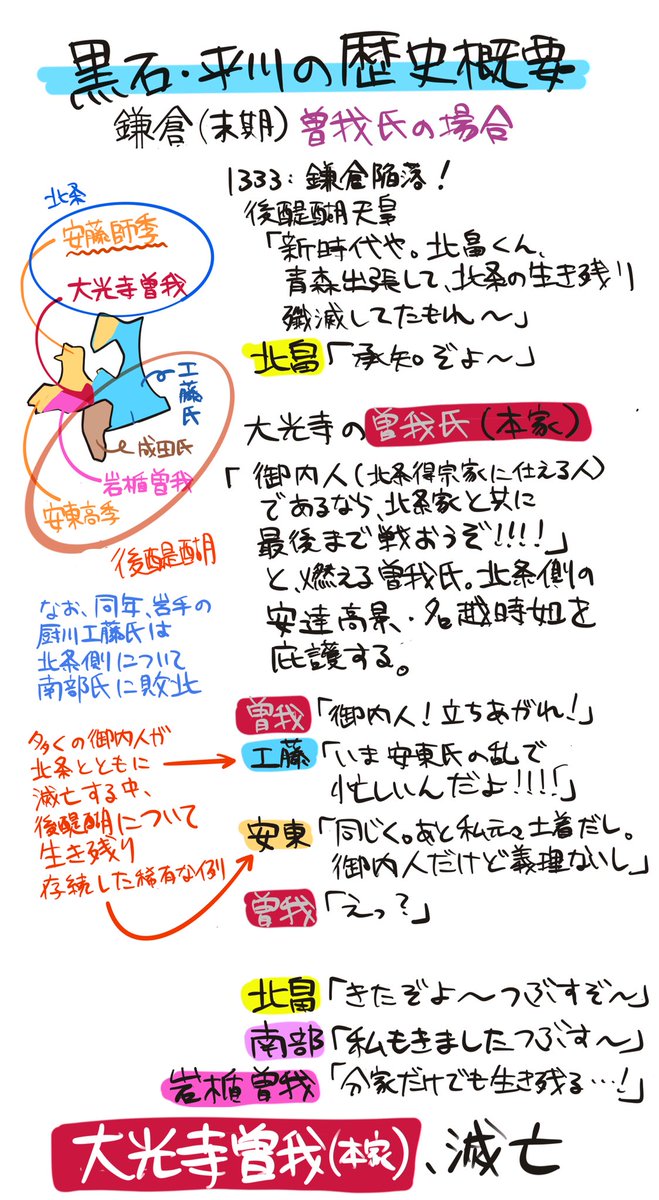 黒石・平川の歴史概要
鎌倉(末期) 曽我氏の場合
1333:鎌倉陥落!
後醍醐天皇
「新時代や。北畠くん、
青森出張して、北条の生き残り
殲滅してたもれ〜」
北畠「承知。ぞよ〜」
北条
安藤師季
大光寺曽我
工藤氏
成田氏
岩楯曽我
安東高季
後醍醐
なお、同年、岩手の
厨川工藤氏は
北条側について
南部氏に敗北
大光寺の曽我氏(本家)
「御内人(北条得宗家に仕える人)
であるなら、北条家と共に
最後まで戦おうぞ!!!!」
と、燃える曽我氏。北条側の
安達高景、・名越時如を
庇護する。
多くの御内人が
北条とともに
滅亡する中、
後醍醐について
生き残り
存続した稀有な例
曽我「御内人!立ちあがれ!」
工藤「いま安東氏の乱で
忙しいんだよ!!!!」
安東「同じく。あと私元々土着だし。
御内人だけど義理ないし。」
曽我「えっ?」
北畠「きたぞよ〜つぶすぞ〜」
南部「私もきましたつぶす〜」
岩楯曽我「分家だけでも生き残る…!」
大光寺曽我(本家)、滅亡